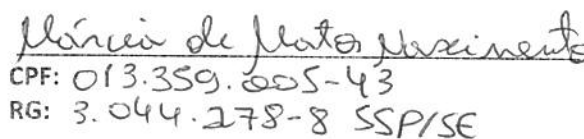 Márcia de Matos Nascimento
CPF: 013.359.005-43
RG: 3.044.278-8 SSP/SE